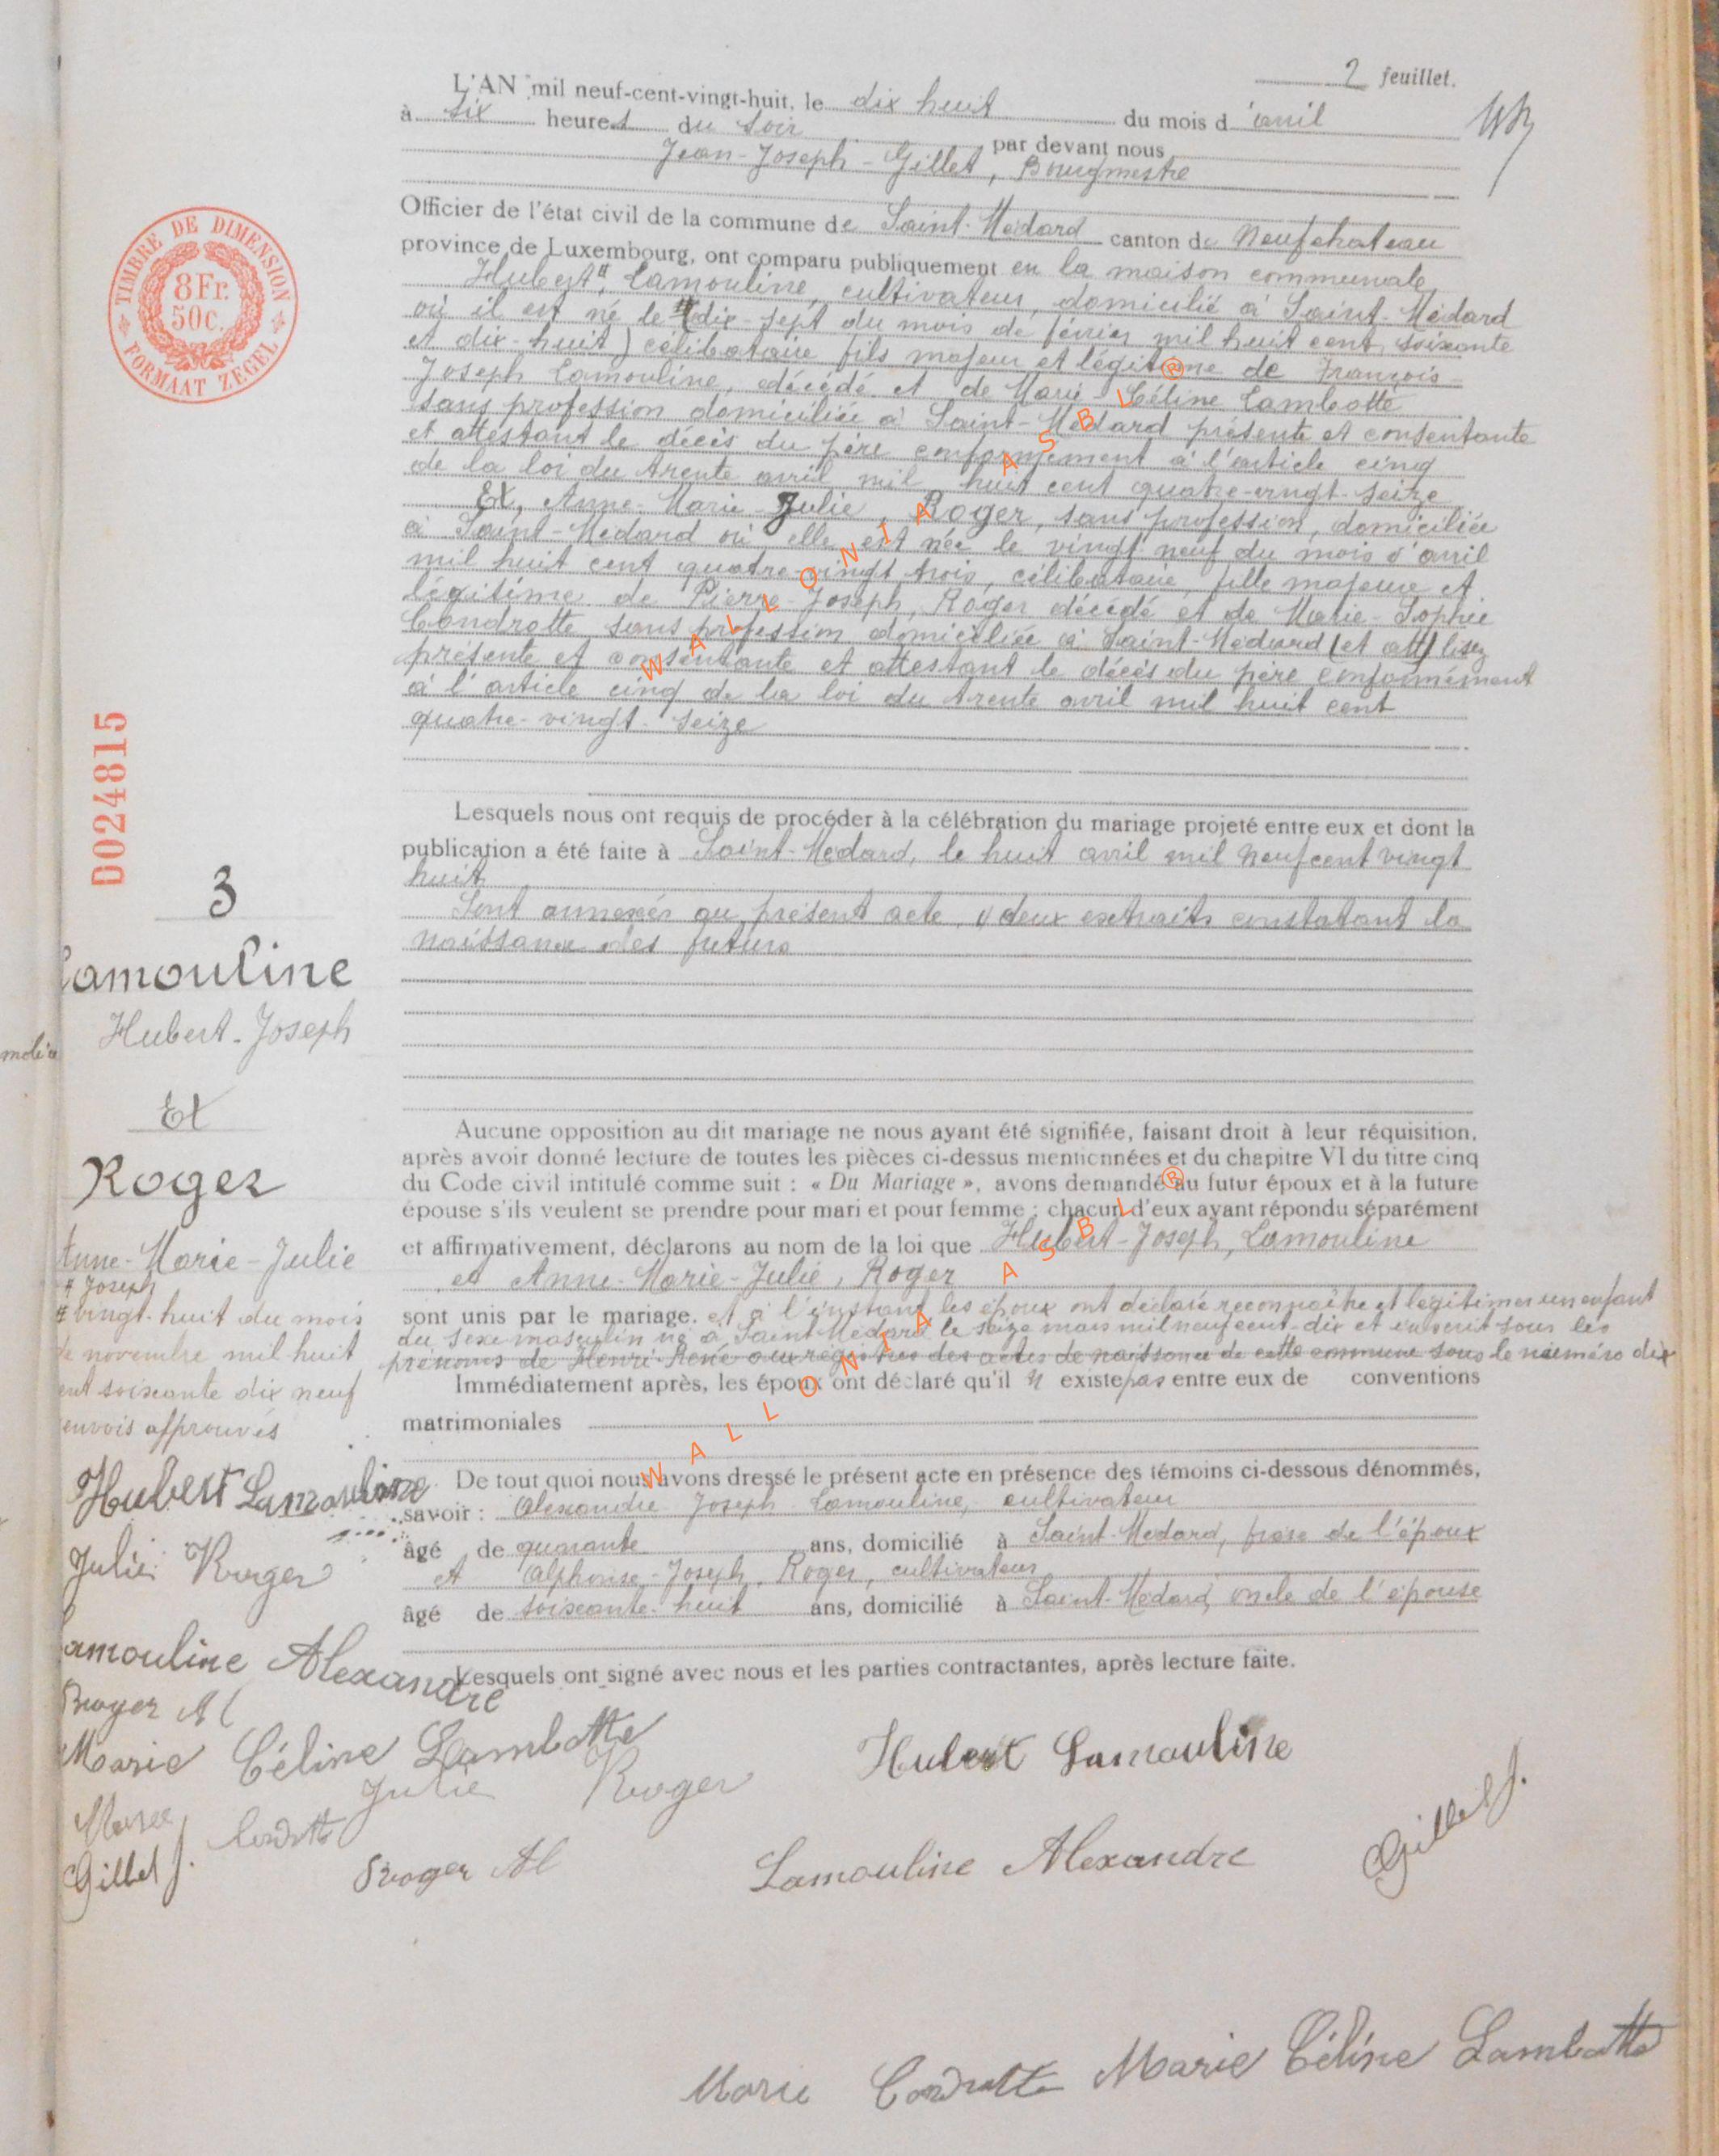 2 feuillet.
L'AN mil neuf-cent-vingt-huit, le dix huit du mois d'avril
à six heures du soir par devant nous
Jean-Joseph-Gillet, Bourgmestre
Officier de l'état civil de la commune de Saint-Médard canton de Neufchateau
province de Luxembourg, ont comparu publiquement en la maison communale,
Hubert #, Lamouline, cultivateur, domicilié à Saint-Médard
où il est né le # (dix-sept du mois de février mil huit cent soixante
et dix-huit) célibataire fils majeur et légitime de François-
Joseph Lamouline, décédé et de Marie Céline Lambotte
sans profession domiciliée à Saint-Médard présente et consentante
et attestant le décès du père conformément à l'article cinq
de la loi du trente avril mil huit cent quatre-vingt-seize
Et, Anne-Marie-Julie, Roger, sans profession, domiciliée
à Saint-Médard où elle est née le vingt neuf du mois d'avril
mil huit cent quatre-vingt trois, célibataire fille majeure et
légitime de Pierre-Joseph, Roger décédé et de Marie-Sophie
Condrotte sans profession domiciliée à Saint-Médard (et att) lisez
présente et consentante et attestant le décès du père conformément
à l'article cinq de la loi du trente avril mil huit cent
quatre-vingt-seize
Lesquels nous ont requis de procéder à la célébration du mariage projeté entre eux et dont la
publication a été faite à Saint-Médard, le huit avril mil neuf cent vingt
huit
Sont annexés au présent acte, deux extraits constatant la
naissance des futurs
Aucune opposition au dit mariage ne nous ayant été signifiée, faisant droit à leur réquisition,
après avoir donné lecture de toutes les pièces ci-dessus mentionnées et du chapitre VI du titre cinq
du Code civil intitulé comme suit : « Du Mariage », avons demandé au futur époux et à la future
épouse s'ils veulent se prendre pour mari et pour femme ; chacun d'eux ayant répondu séparément
et affirmativement, déclarons au nom de la loi que Hubert-Joseph, Lamouline
et Anne-Marie-Julie, Roger
sont unis par le mariage. et à l'instant les époux ont déclaré reconnaître et légitimer un enfant
du sexe masculin né à Saint Médard le seize mars mil neuf cent-dix et inscrit sous les
prénoms de Henri-René aux registres des actes de naissance de cette commune sous le numéro dix
Immédiatement après, les époux ont déclaré qu'il n' existe pas entre eux de conventions
matrimoniales
De tout quoi nous avons dressé le présent acte en présence des témoins ci-dessous dénommés,
savoir : Alexandre Joseph Lamouline, cultivateur
âgé de quarante ans, domicilié à Saint-Médard, frère de l'époux
et Alphonse-Joseph, Roger, cultivateur
âgé de soixante-huit ans, domicilié à Saint-Médard, oncle de l'épouse
Lesquels ont signé avec nous et les parties contractantes, après lecture faite.
TIMBRE DE DIMENSION
8 Fr.
50 c.
FORMAAT ZEGEL
D024815
3
Lamouline
Hubert-Joseph
Et
Roger
Anne-Marie-Julie
# Joseph
# vingt-huit du mois
de novembre mil huit
cent soixante dix neuf
renvois approuvés
Hubert Lamouline
Julie Roger
Lamouline Alexandre
Roger Al
Marie Céline Lambotte
Marie Condrotte
Gillet J.
Julie Roger
Hubert Lamouline
Roger Al
Lamouline Alexandre
Gillet J.
Marie Condrotte Marie Céline Lambotte
WALLONIA ASBL ®
WALLONIA ASBL ®